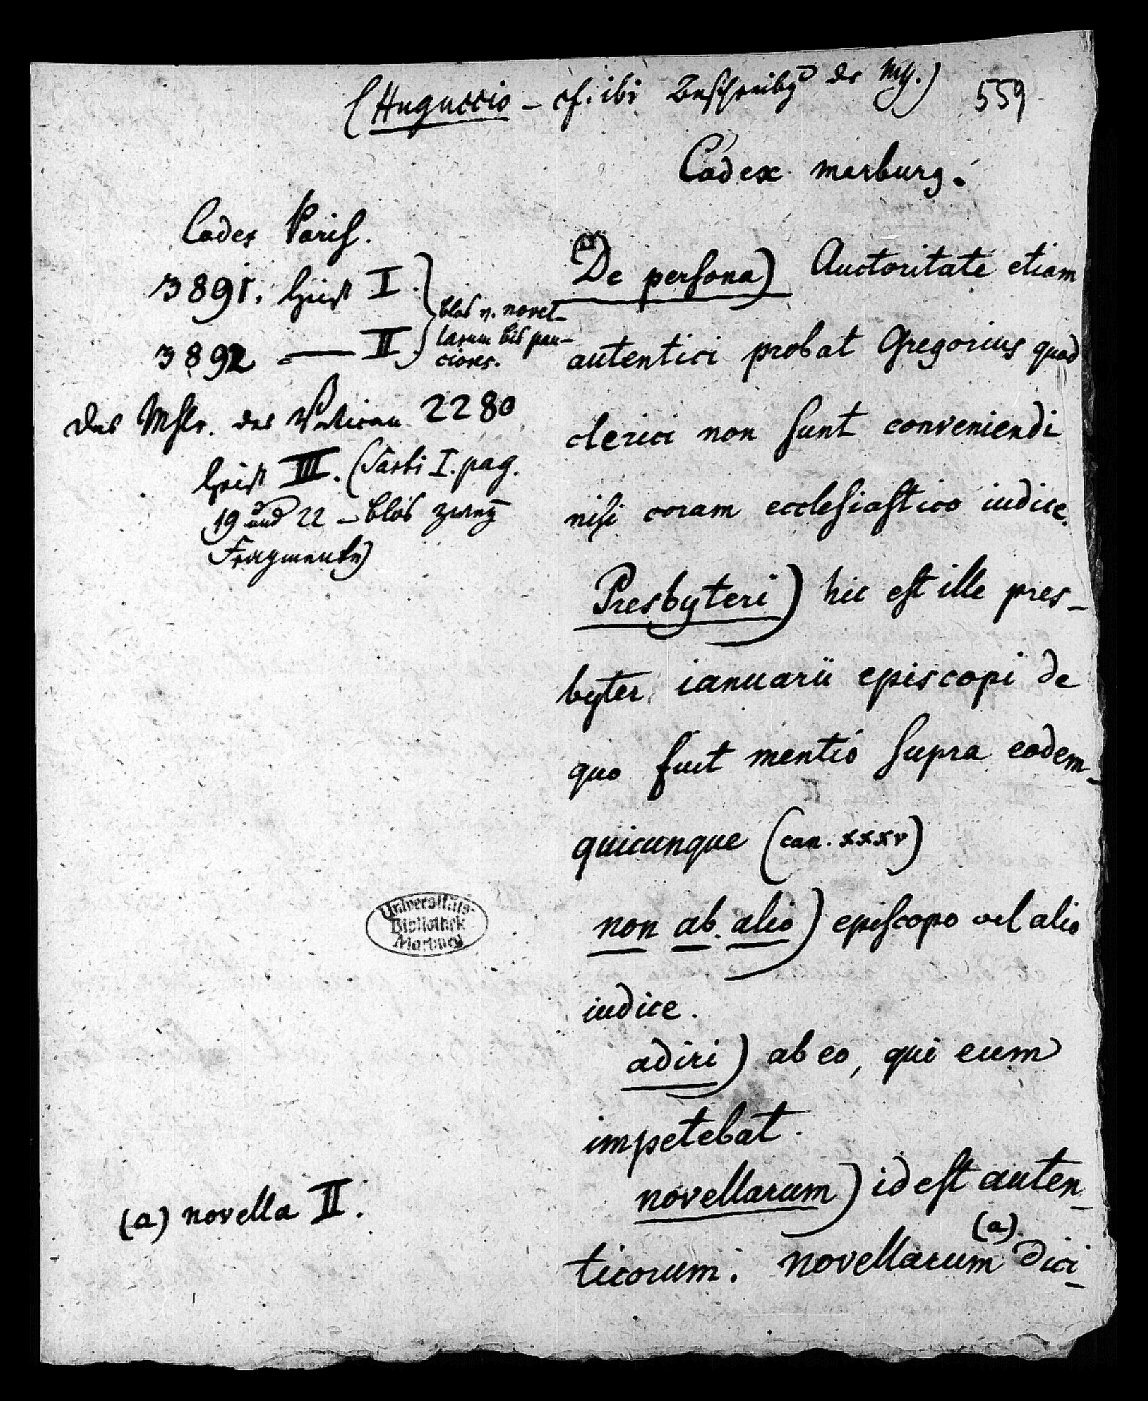 (Huguccio – cf. ibi Beschreibg der Msc.)
559
Codex marburg.
Codex Paris.
3891. heißt I.
3892 — II.
blos n. novel-
larum bis pau-
ciores.
das Mscr. des Vatican 2280
heißt III. (Sarti I. pag.
19 und 22 – blos zwey
Fragmente)
(a) novella II.
(a)
De persona) Auctoritate etiam
autentici probat Gregorius quod
clerici non sunt conveniendi
nisi coram ecclesiastico iudice.
Presbyteri) hic est ille pres-
byter ianuarii episcopi de
quo fuit mentio supra eodem-
quicunque (can. xxxv)
non ab alio) episcopo vel alio
iudice.
adiri) ab eo, qui eum
impetebat.
novellarum) id est auten-
ticorum. novellarum (a) dici-
Universitäts-
Bibliothek
Marburg